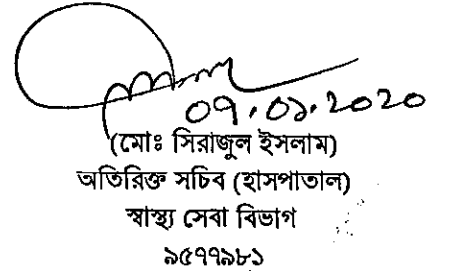 ০৭.০১.২০২০
(মোঃ সিরাজুল ইসলাম)
অতিরিক্ত সচিব (হাসপাতাল)
স্বাস্থ্য সেবা বিভাগ
৯৫৭৭৯৮১